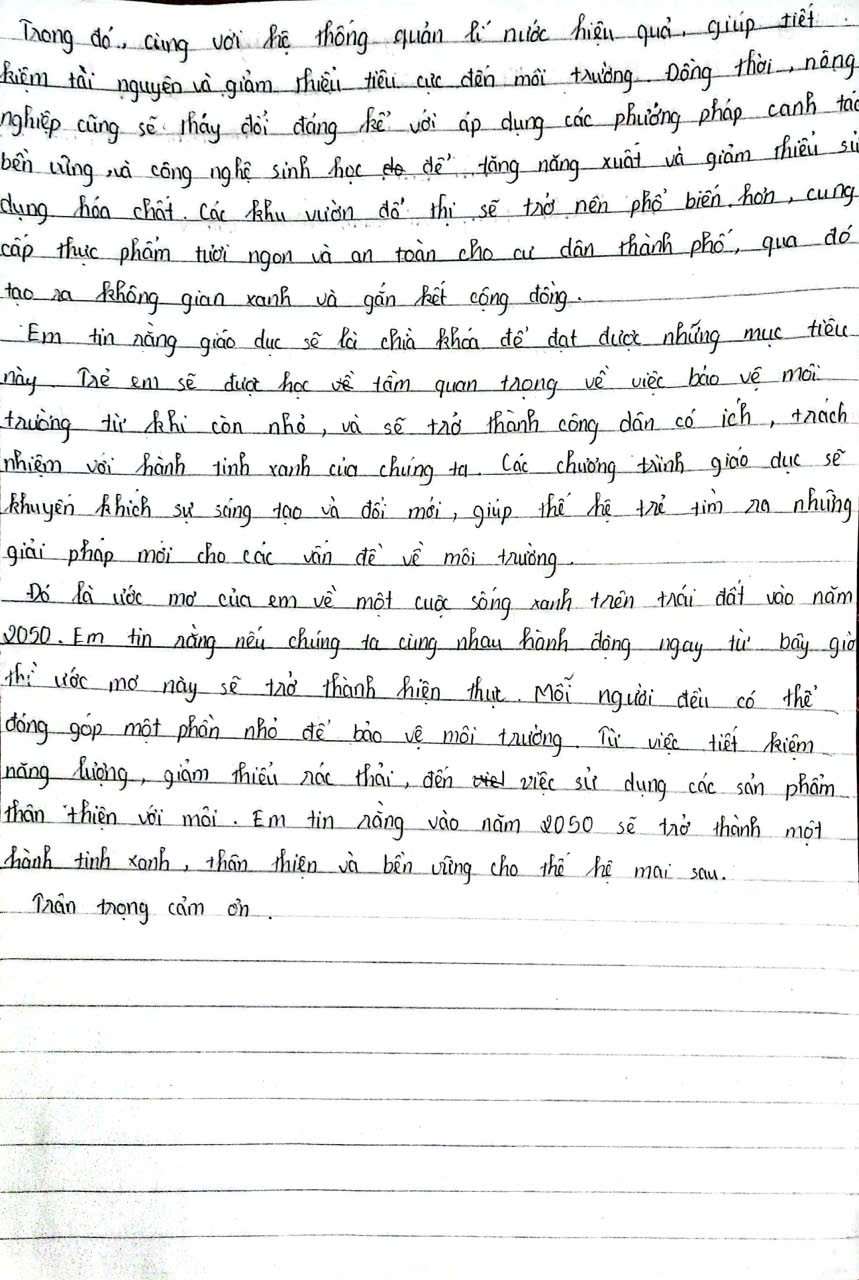 Trong đó, cùng với hệ thống quản lí nước hiệu quả, giúp tiết
kiệm tài nguyên và giảm thiểu tiêu cực đến môi trường. Đồng thời, nông
nghiệp cũng sẽ thay đổi đáng kể với áp dụng các phương pháp canh tác
bền vững, và công nghệ sinh học để tăng năng xuất và giảm thiểu sử
dụng hóa chất. Các khu vườn đô thị sẽ trở nên phổ biến hơn, cung
cấp thực phẩm tươi ngon và an toàn cho cư dân thành phố, qua đó
tạo ra không gian xanh và gắn kết cộng đồng.
Em tin rằng giáo dục sẽ là chìa khóa để đạt được những mục tiêu
này. Trẻ em sẽ được học về tầm quan trọng về việc bảo vệ môi
trường từ khi còn nhỏ, và sẽ trở thành công dân có ích, trách
nhiệm với hành tinh xanh của chúng ta. Các chương trình giáo dục sẽ
khuyến khích sự sáng tạo và đổi mới, giúp thế hệ trẻ tìm ra những
giải pháp mới cho các vấn đề về môi trường.
Đó là ước mơ của em về một cuộc sống xanh trên trái đất vào năm
2050. Em tin rằng nếu chúng ta cùng nhau hành động ngay từ bây giờ
thì ước mơ này sẽ trở thành hiện thực. Mỗi người đều có thể
đóng góp một phần nhỏ để bảo vệ môi trường. Từ việc tiết kiệm
năng lượng, giảm thiểu rác thải, đến việc sử dụng các sản phẩm
thân thiện với môi. Em tin rằng vào năm 2050 sẽ trở thành một
hành tinh xanh, thân thiện và bền vững cho thế hệ mai sau.
Trân trọng cảm ơn.